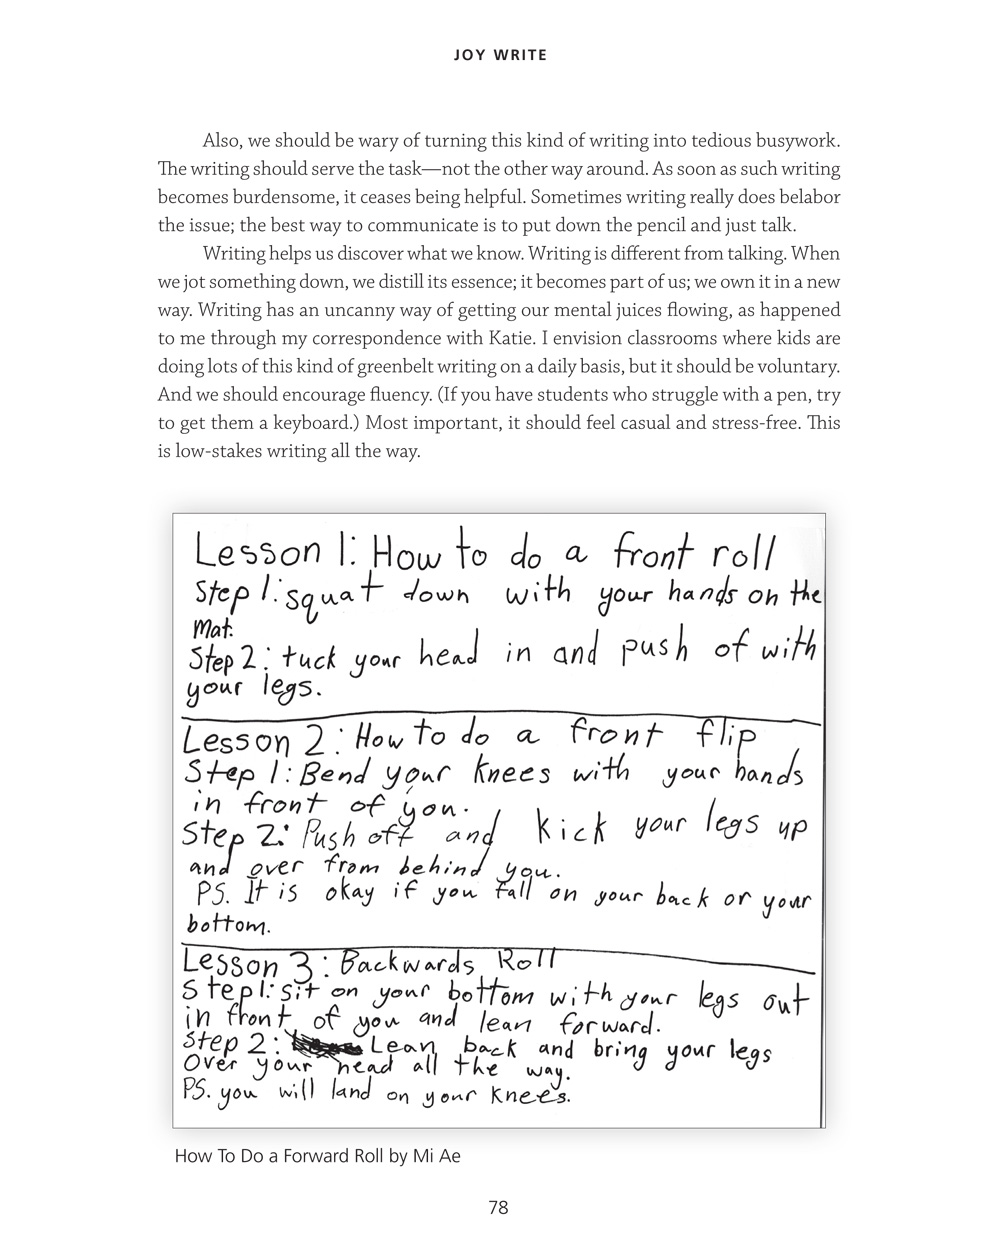 JOY WRITE
Also, we should be wary of turning this kind of writing into tedious busywork.
The writing should serve the task—not the other way around. As soon as such writing
becomes burdensome, it ceases being helpful. Sometimes writing really does belabor
the issue; the best way to communicate is to put down the pencil and just talk.
Writing helps us discover what we know. Writing is different from talking. When
we jot something down, we distill its essence; it becomes part of us; we own it in a new
way. Writing has an uncanny way of getting our mental juices flowing, as happened
to me through my correspondence with Katie. I envision classrooms where kids are
doing lots of this kind of greenbelt writing on a daily basis, but it should be voluntary.
And we should encourage fluency. (If you have students who struggle with a pen, try
to get them a keyboard.) Most important, it should feel casual and stress-free. This
is low-stakes writing all the way.
Lesson 1: How to do a front roll
Step 1: squat down with your hands on the
Mat.
Step 2: tuck your head in and push of with
your legs.
Lesson 2: How to do a front flip
Step 1: Bend your knees with your hands
in front of you.
Step 2: Push off and kick your legs up
and over from behind you.
PS. It is okay if you fall on your back or your
bottom.
Lesson 3: Backwards Roll
Step 1: sit on your bottom with your legs out
in front of you and lean forward.
Step 2: Lean back and bring your legs
Over your head all the way.
PS. you will land on your knees.
How To Do a Forward Roll by Mi Ae
78